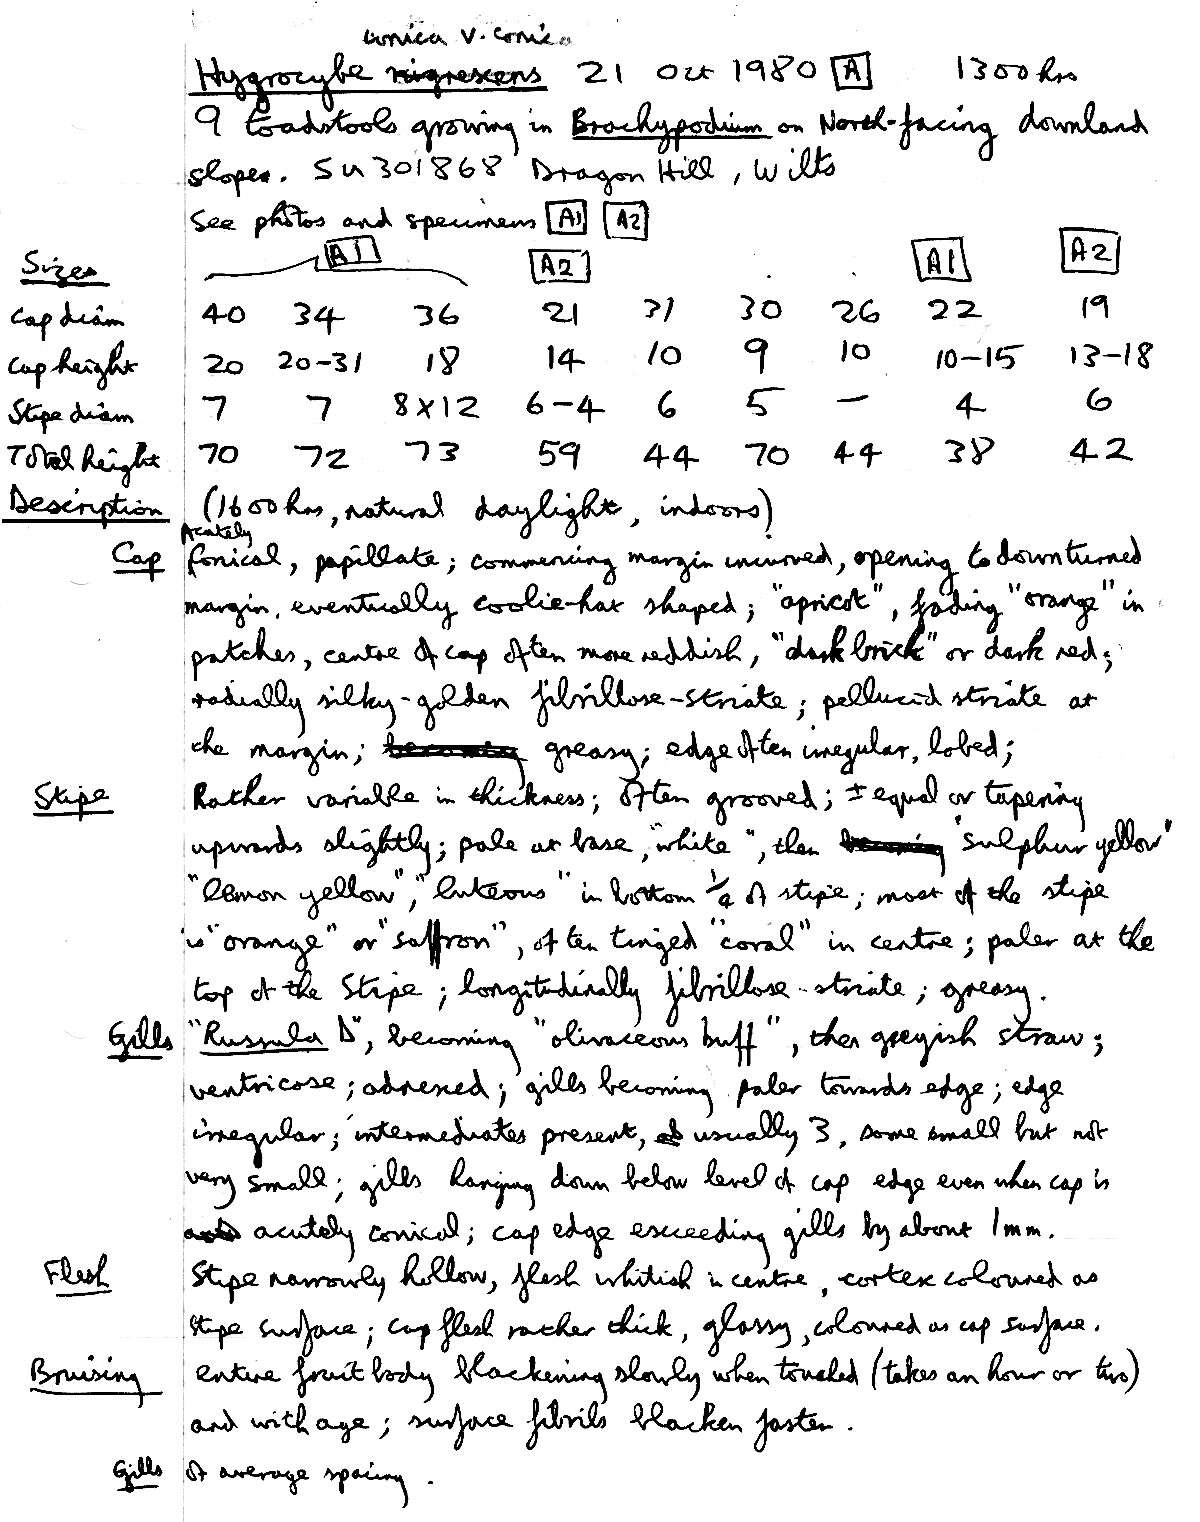 conica v. conica
Hygrocybe nigrescens 21 Oct 1980 A 1300 hrs
9 toadstools growing in Brachypodium on North-facing downland
slopes. SU 301868 Dragon Hill, Wilts
See photos and specimens A1 A2
Sizes A1 A2 A1 A2
Cap diam 40 34 36 21 31 30 26 22 19
Cap height 20 20-31 18 14 10 9 10 10-15 13-18
Stipe diam 7 7 8x12 6-4 6 5 - 4 6
Total height 70 72 73 59 44 70 44 38 42
Description (1600 hrs, natural daylight, indoors)
Acutely
Cap conical, papillate; commencing margin incurved, opening to downturned
margin, eventually coolie-hat shaped; "apricot", fading "orange" in
patches, centre of cap often more reddish, "dark brick" or dark red;
radially silky-golden fibrillose-striate; pellucid striate at
the margin; becoming greasy; edge often irregular, lobed;
Stipe Rather variable in thickness; often grooved; ± equal or tapering
upwards slightly; pale at base, "white", then becoming "sulphur yellow"
"lemon yellow", "luteous" in bottom 1/4 of stipe; most of the stipe
is "orange" or "saffron", often tinged "coral" in centre; paler at the
top of the stipe; longitudinally fibrillose-striate; greasy.
Gills "Russula D", becoming "olivaceous buff", then greyish straw;
ventricose; adnexed; gills becoming paler towards edge; edge
irregular; intermediates present, usually 3, some small but not
very small; gills hanging down below level of cap edge even when cap is
acutely conical; cap edge exceeding gills by about 1mm.
Flesh Stipe narrowly hollow, flesh whitish in centre, cortex coloured as
stipe surface; cap flesh rather thick, glassy, coloured as cap surface.
Bruising entire fruit body blackening slowly when touched (takes an hour or two)
and with age; surface fibrils blacken faster.
Gills of average spacing.